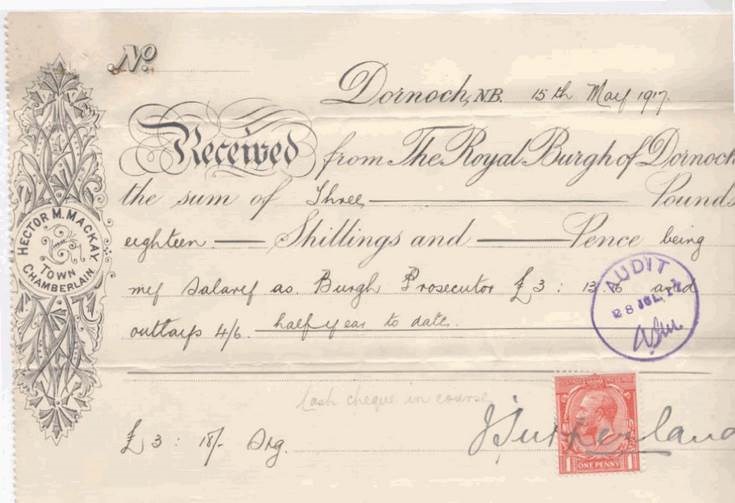 No
Dornoch, N.B. 15th May 1917.
Received from The Royal Burgh of Dornoch
the sum of Three Pounds
eighteen Shillings and Pence being
my salary as Burgh Prosecutor £3 : 13/6 and
outlays 4/6. half year to date.
HECTOR M. MACKAY
TOWN
CHAMBERLAIN
AUDIT
28 JUL
Cash cheque in course
£3 : 18/- Stg.
J Sutherland
ONE PENNY